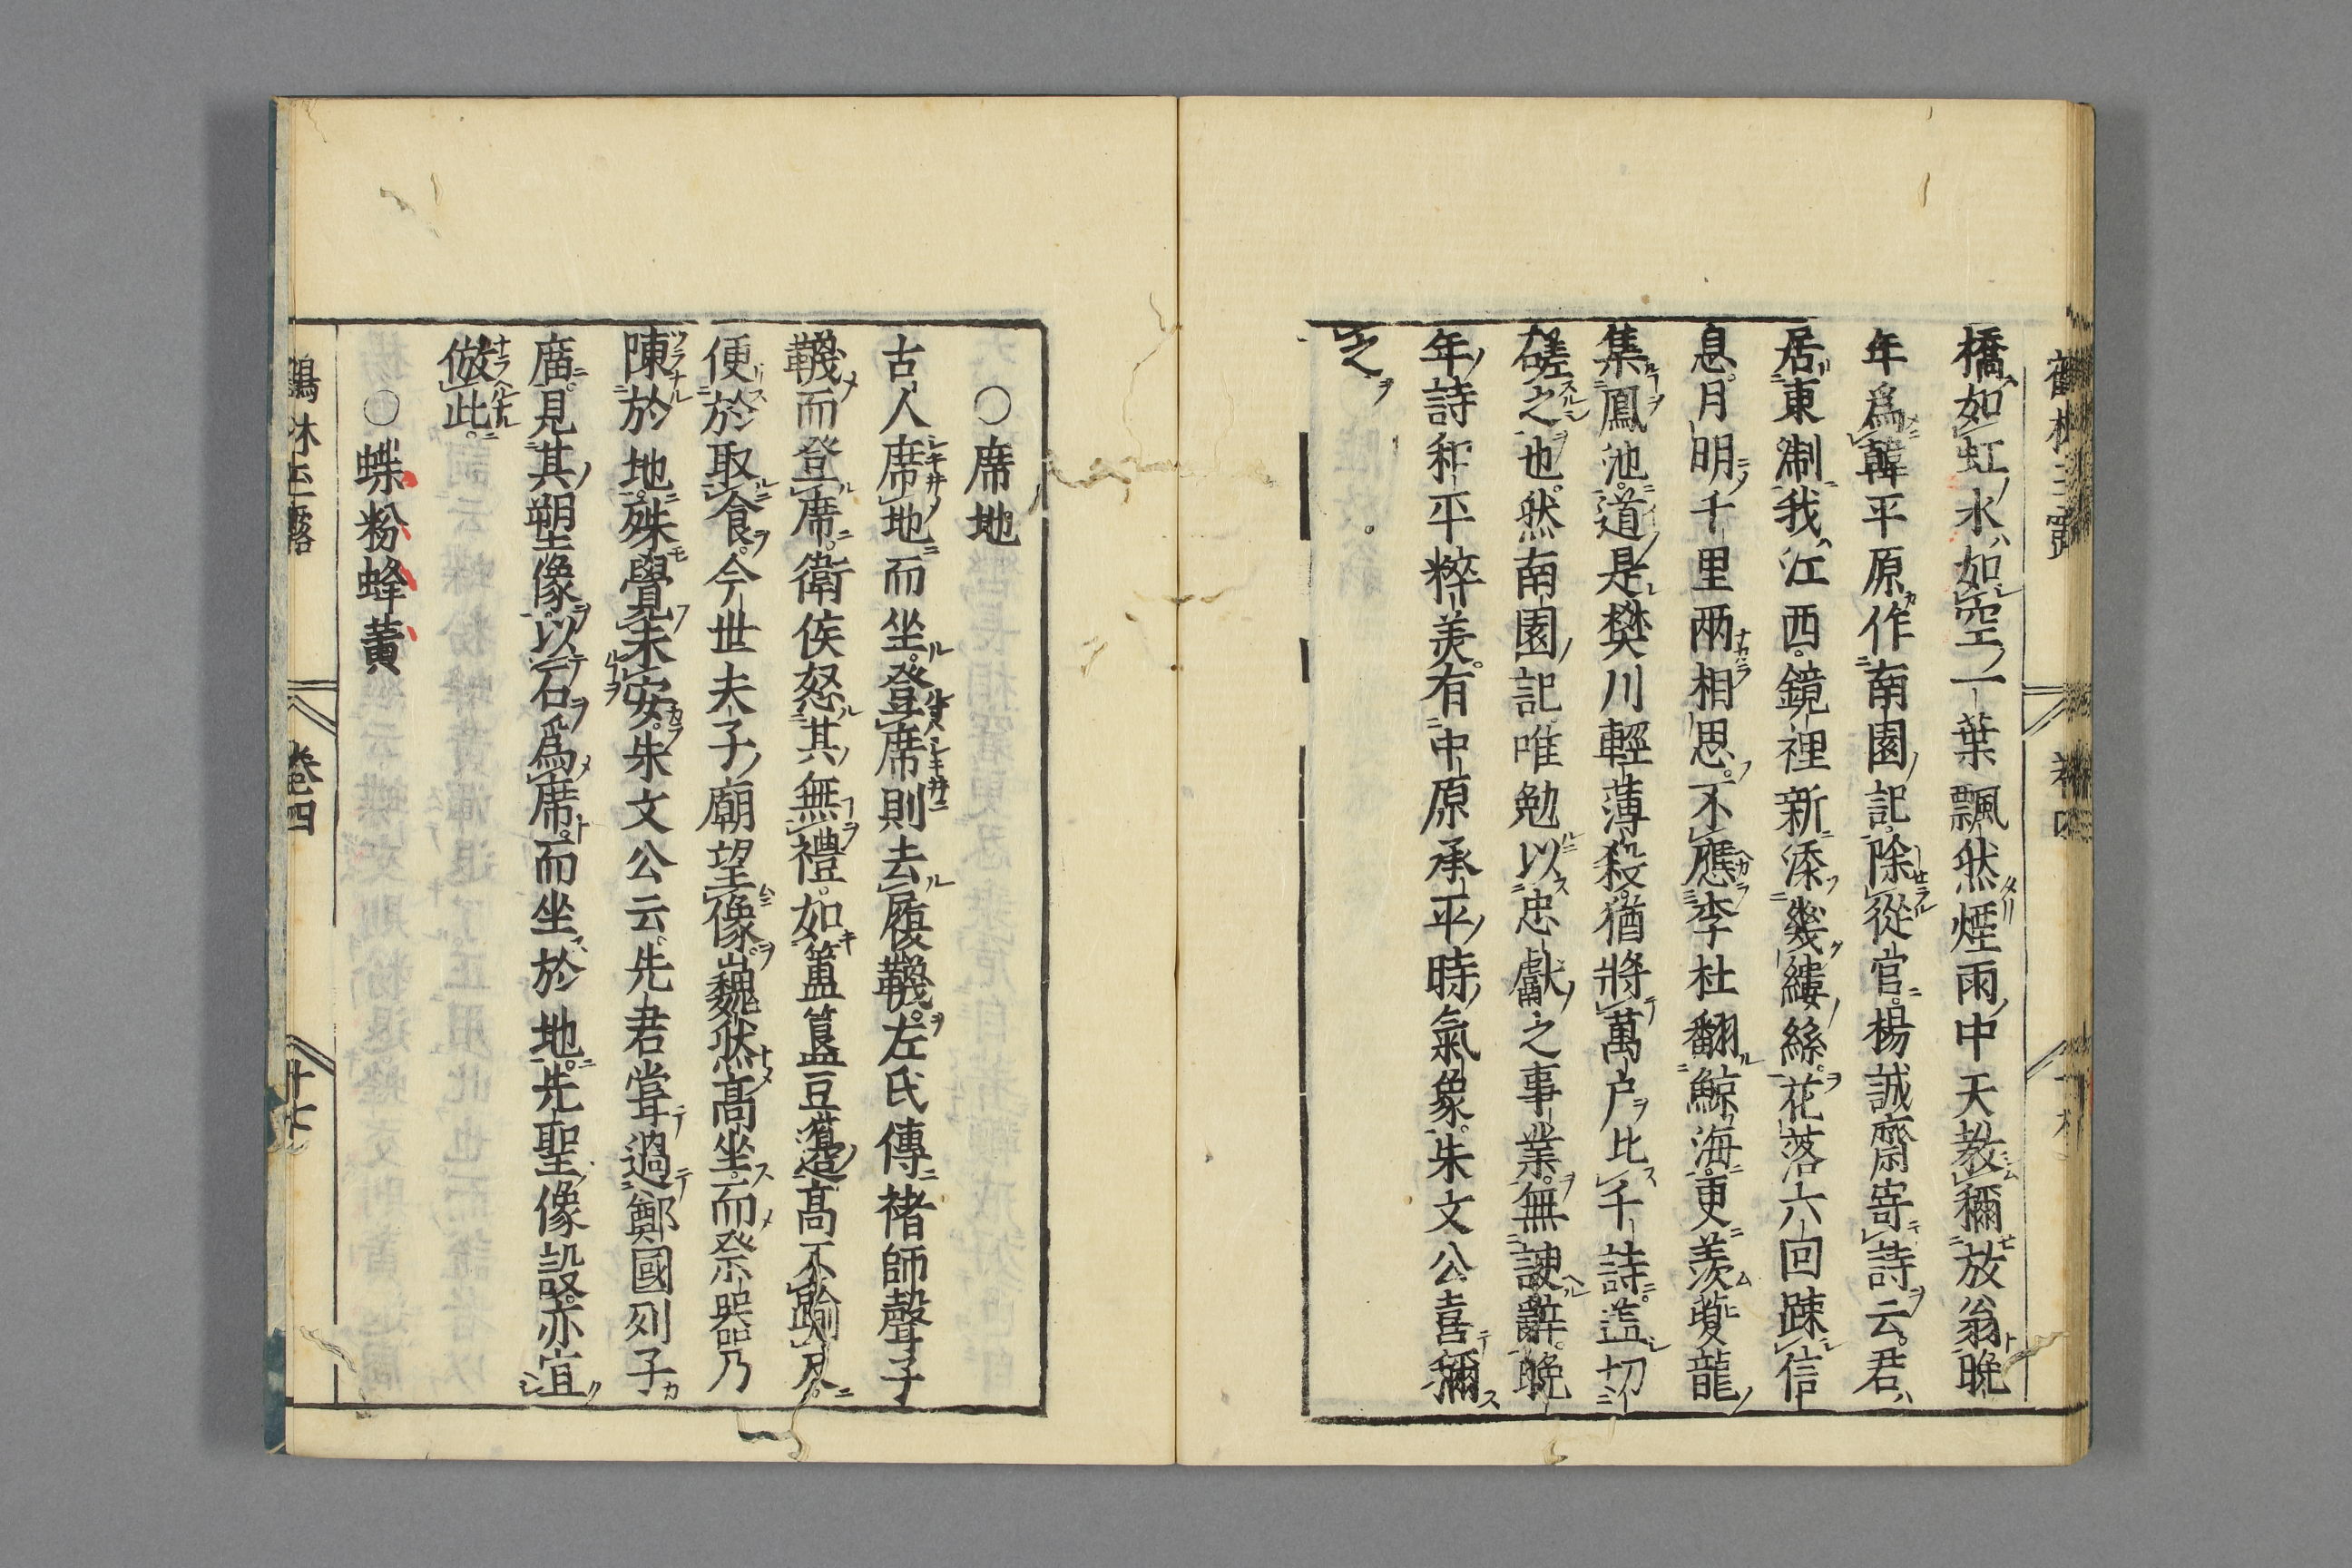 橋如虹水如空一葉飄然煙雨中天教稱放翁晚
年爲韓平原作南園記除從官楊誠齋寄詩云君
居東淛我江西鏡裡新添幾縷絲花落六回踈信
息月明千里兩相思不應李杜翻鯨海更羨夔龍
集鳳池道是樊川輕薄殺猶將萬户比千詩盖切
磋之也然南園記唯勉以忠獻之事業無諛辭晚
年詩和平粹美有中原承平時氣象朱文公喜稱
之
○席地
古人席地而坐登席則去履韈左氏傳褚師聲子
韈而登席衛侯怒其無禮如簠簋豆籩高不踰尺
便於取食今世夫子廟望像巍然高坐而祭器乃
陳於地殊覺未安朱文公云先君嘗過鄭國列子
廟見其塑像以石爲席而坐於地先聖像設亦宜
倣此
○蝶粉蜂黃
鶴林玉露 卷四 十七